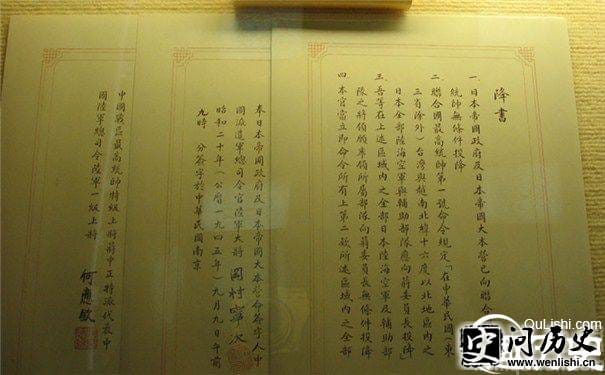 降書
一日本帝國政府及日本帝國大本營已向聯合
統帥無條件投降
二聯合國最高統帥第一號命令規定「在中華民國(東
三省除外)台灣與越南北緯十六度以北地區內之
日本全部陸海空軍與輔助部隊應向蔣委員長投降」
三吾等在上述區域內之全部日本陸海空軍及輔助部
隊之將領願率領所屬部隊向蔣委員長無條件投降
四本官當立即命令所有上第二款所述區域內之全部
奉日本帝國政府及日本帝國大本營命簽字人中
國派遣軍總司令官陸軍大將 岡村寧次
昭和二十年(公曆一九四五年)九月九日午前
九時 分簽字於中華民國南京
中國戰區最高統帥特級上將蔣中正特派代表中
國陸軍總司令陸軍一級上將
何應欽
QuLishi.com
问历史
www.wenlishi.com